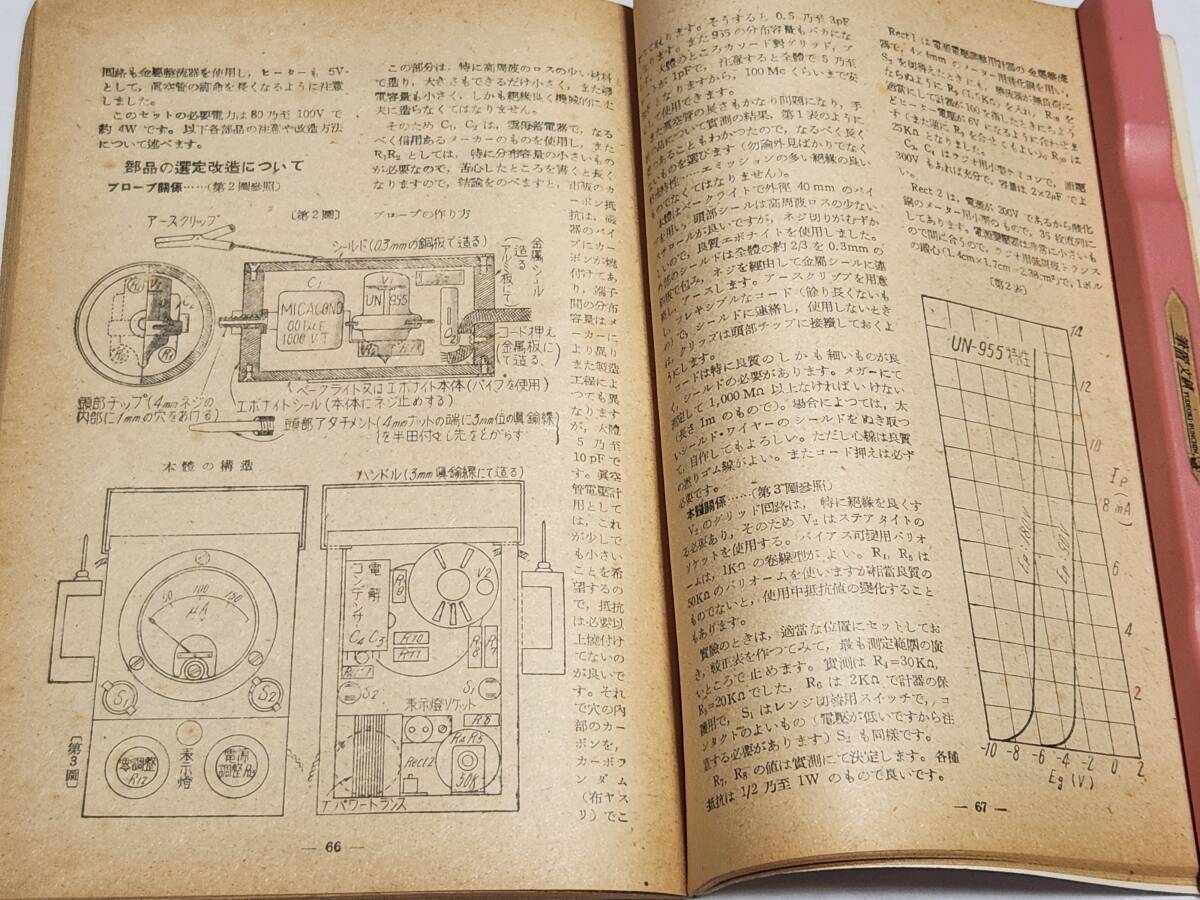 囘路も金屬整流器を使用し、ヒーターも 5V
として、眞空管の壽命を長くなるように注意
しました。
このセットの必要電力は 80 乃至 100V で
約 4W です。以下各部品の注意や改造方法
について述べます。
部品の選定改造について
プローブ關係……(第2圖參照)
この部分は、特に高周波のロスの少い材料
で造り、大きさもできるだけ小さく、また靜
電容量も小さく、しかも絕緣良く機械的に丈
夫に造らなくてはなりません。
そのため C₁, C₂ は、雲母蓄電器で、なる
べく信用あるメーカーのものを使用し、また
R₁R₂ としては、特に分布容量の小さいもの
が必要なので、苦心したところを書くと長く
なりますので、結論をのべますと、市販のカ
ーボン抵
抗は、磁
器のパイ
プにカー
ボンが燒
付けてあ
り、端子
間の分布
容量はメ
ーカーに
より異り
また製造
工程によ
つても異
なります
が、大體
5 乃至
10pF で
す。眞空
管電壓計
用として
は、これ
が少しで
も小さい
ことを希
望するの
で、抵抗
は必要以
上燒付け
てないの
が良いで
す。それ
で穴の內
部のカー
ボンを、
カーボラ
ンダム
(布ヤス
リ)でこ
アースクリップ
〔第2圖〕 プローブの作り方
シールド(0.3mmの銅板で造る)
金属シール
(アルミ板して造る)
C₁
MICACOND
0.01μF
1000VT
V₁
UN 955
C₂
コード押え
(金属板にて造る)
ベークライト又はエボナイト本体(パイプを使用)
頭部チップ(4mmネジの
内部に1mmの穴をあける)
エボナイトシール(本体にネジ止めする)
頭部アタチメント(4mmナットの端に3mm位の眞鍮線
を半田付をし先をとがらす
本體の構造
ハンドル(3mm眞鍮線にて造る)
50 100 150
μA
S₁
S₂
零調整
R12
表示燈
電源
調整R9
〔第3圖〕
電解コンデンサ
C4 C3
V2
R10
R11
S2
S1
表示燈ソケット
R6
R4 R5
Rect2
50K
T パワートランス
— 66 —
て取ります。そうすると 0.5 乃至 3pF
ります。また 955 の分布容量もバカにな
大體のところカソード對グリッド、プ
が 1pF で、注意すると全體で 5 乃至
となりますから、100 Mc くらいまで安
使用できます。
眞空管の長さもかなり問題になり、手
品について實測の結果、第1表のように
あることもわかつたので、なるべく長く
ものを選びます(勿論外見ばかりでなく
特性……エミッションの多い絕緣の良い
ものでなくてはなりません)。
本體はベークライトで外徑 40 mm のパイ
プを用い、頭部シールは高周波ロスの少ない
スチロールが良いですが、ネジ切りがむずか
しいので、良質エボナイトを使用しました。
部のシールドは全體の約 2/3 を 0.3mm の
銅板で包み、ネジを經由して金屬シールに連
アースします。アースクリップを用意
し、フレキシブルなコード(餘り長くないも
の)で、シールドに連絡し、使用しないせき
クリップは頭部チップに接觸しておくよ
うにします。
コードは特に良質のしかも細いものが良
シールドの必要があります。メガーにて
測定して 1,000 MΩ 以上なければいけない
(長さ 1m のもので)。場合によつては、太
いシールド・ワイヤーのシールドをぬき取つ
て、自作してもよろしい。ただし心線は良質
の撚りゴム線がよい。またコード押えは必ず
必要です。
本體關係……(第3圖參照)
V₂ のグリッド囘路は、特に絕緣を良くす
る必要あり、そのため V₂ はステアタイトの
ソケットを使用する。バイアス可變用バリオ
ームは、1KΩ の卷線型がよい。R₄, R₅ は
50KΩ のバリオームを使いますが相當良質の
ものでないと、使用中抵抗値の變化すること
もあります。
實驗のときは、適當な位置にセットしてお
き、較正表を作つてみて、最も測定範囲の廣
いところで止めます。實測は R₄=30KΩ,
R₅=20KΩ でした。R₆ は 2KΩ で計器の保
護用で、S₁ はレンジ切替用スイッチで、コ
ンタクトのよいもの(電壓が低いですから注
意する必要があります) S₂ も同樣です。
R₇, R₈ の値は實測にて決定します。各種
抵抗は 1/2 乃至 1W のもので良いです。
Rect 1 は電源電壓調整用計器の金屬整流
器で、4〜6mm のメーター用酸化銅を用い、
S₂ を切替えたときにも、
ならぬように R₉ (1.5KΩ) を入れ、R₁₀ を
適當にして計器が 100 を指したときにちよう
どヒーター電壓が 6V になるように合わせま
す(また逆に R₉ を合せてもよい)。R₁₀ は
25KΩ となりました。
C₃, C₄ はラジオ用小型ケミコンで、耐壓
300V もあれば充分で、容量は 2×2μF でよ
Rect 2 は、電壓が 200V であるから酸化
銅のメーター用小型のもので、35 枚直列に
してあります。電源電壓は非常に小さいも
ので間に合うので、ラジオ用低周波トランス
の鐵心(1.4cm×1.7cm=2.38cm²)で、1ボル
〔第2表〕
UN-955特性
Ep=180V
Ep=90V
14
12
10
Ip
8 (mA)
6
4
2
-10 -8 -6 -4 -2 0 2
Eg (V)
— 67 —